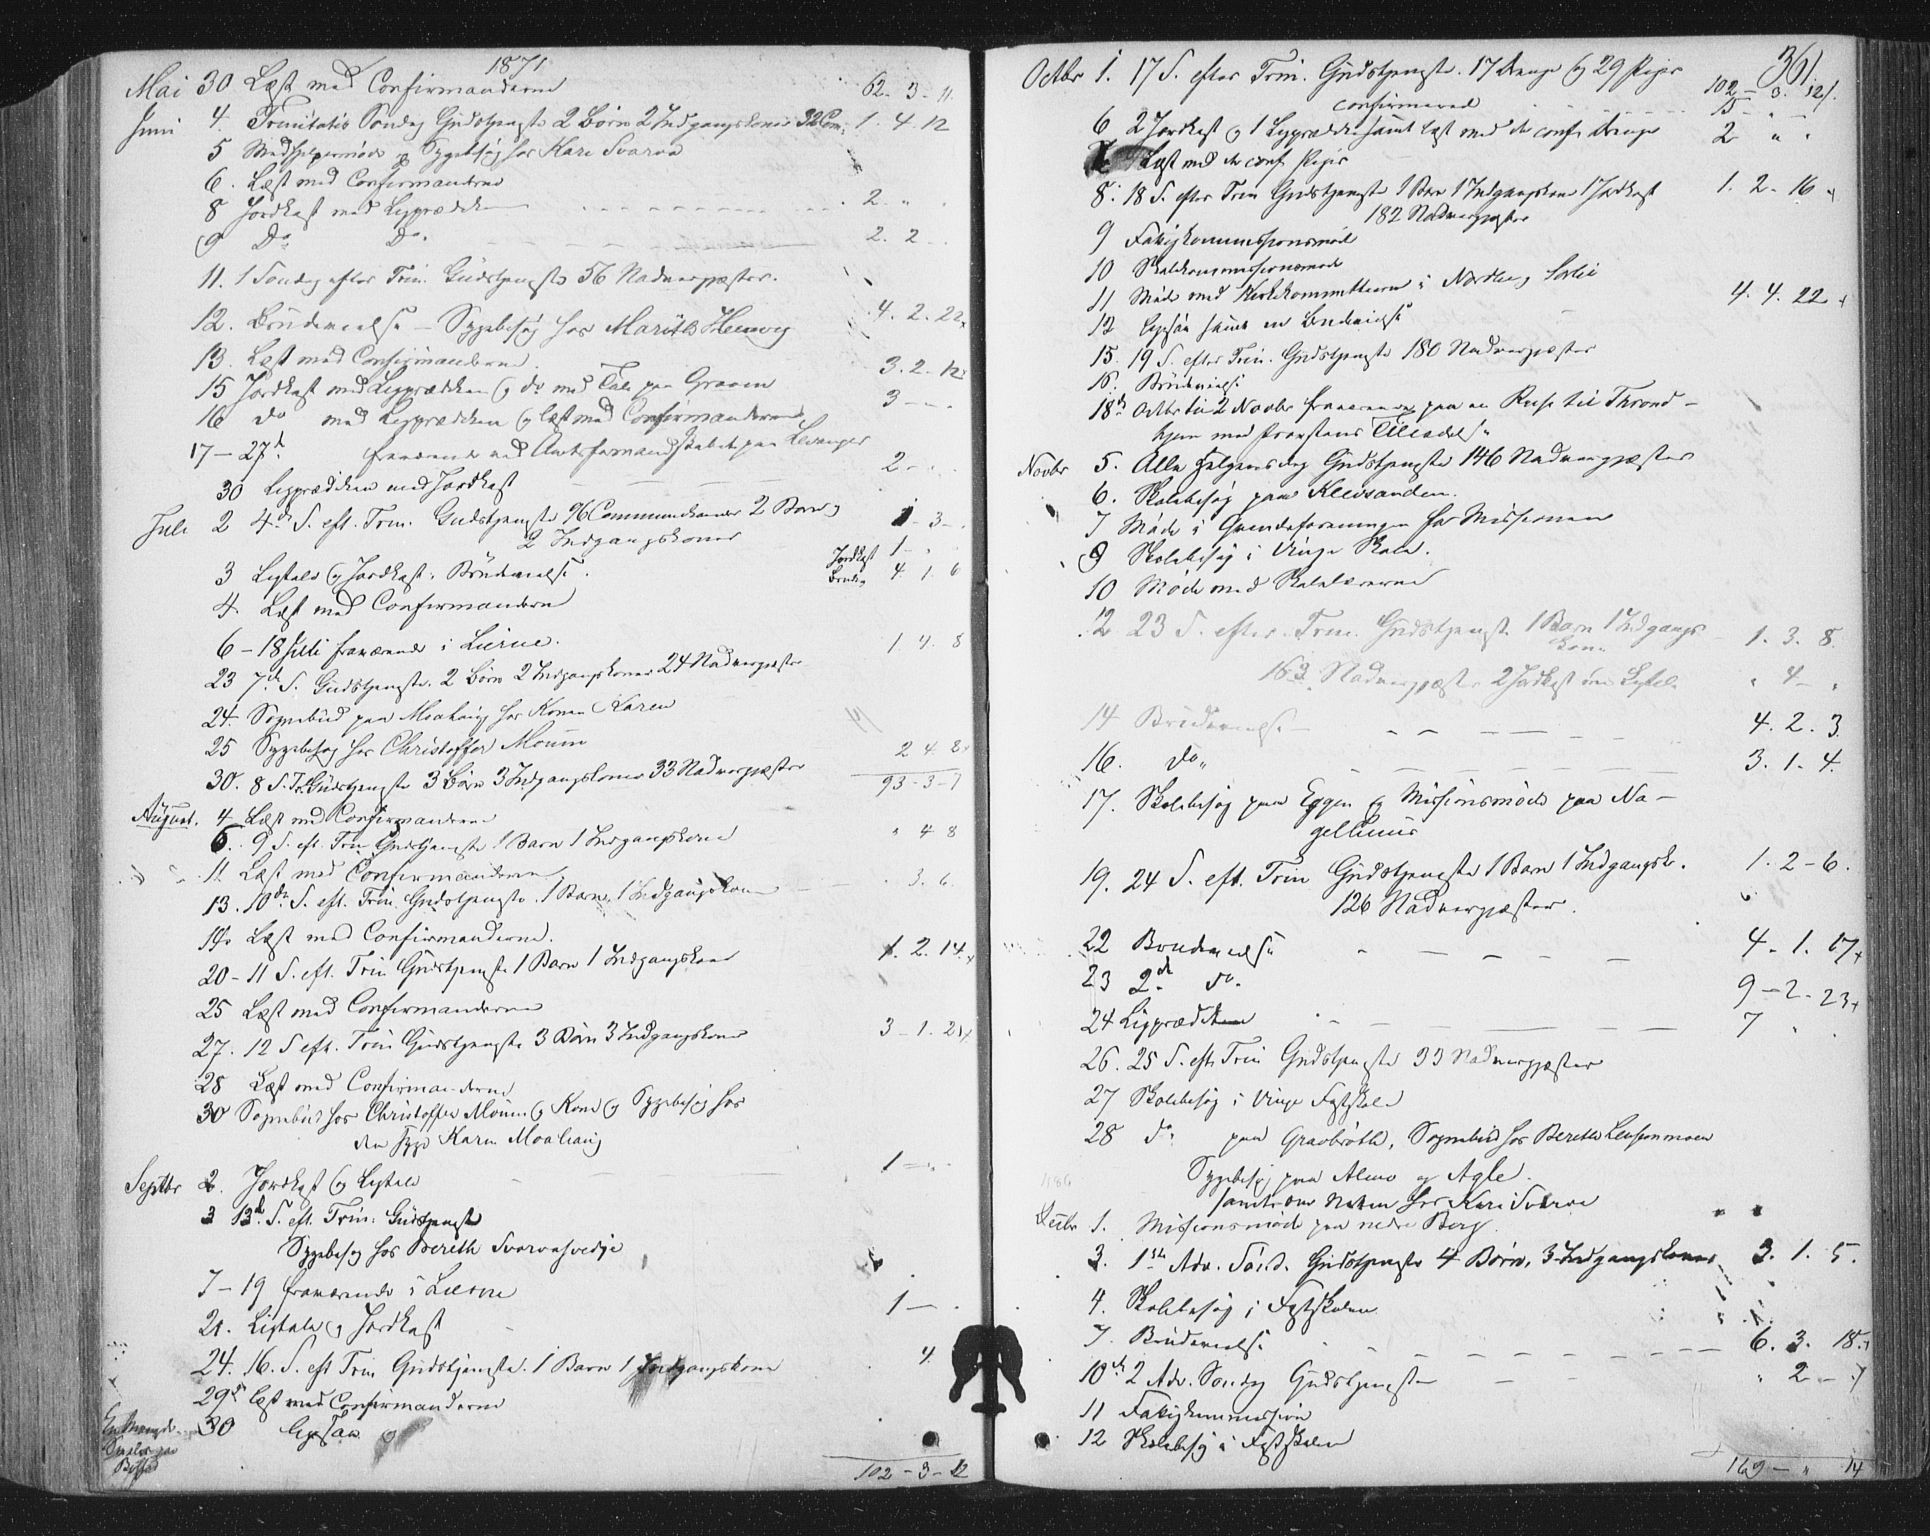 1871
Mai 30 Læst med Confirmanderne 62 - 3 - 11.
Juni 4. Trinitatis Søndag Gudstjeneste 2 Børn 2 Indgangskoner 32 Com: 1. 4. 12
5 Medhjelpermøde og Sygebesøg hos Kari Svarva
6. Læst med Confirmanderne
8 Jordkast med Ligprædiken 2. " .
9 Do Do 2. 2 - .
11. 1 Søndag efter Trin. Gudstjeneste 56 Nadvergjæster.
12. Brudevielse - Sygebesøg hos Marith Hemveg 4. 2. 22
13. Læst med Confirmanderne 3. 2. 12
15 Jordkast med Ligprædiken og do med Tale paa Graven
16 do med Ligprædiken og læst med Confirmanderne 3 - -
17 - 27d fraværende ved Amtsformandskabet paa Levanger
30 Ligprædiken med Jordkast 2 - .
Juli 2 4de S. eft. Trin. Gudstjeneste 96 Communikanter 2 Børn 1 - 3 -
2 Indgangskoner
3 Ligtale og Jordkast. Brudevielse. Jordkast 1 - Brudev 4. 1. 6
4 Læst med Confirmanderne
6 - 18 Juli fraværende i Lierne.
23 7de S. Gudstjeneste. 2 Børn 2 Indgangskoner 24 Nadvergjæster 1. 4. 8
24. Sognebud paa Moahaug hos Konen Karen
25 Sygebesøg hos Christoffer Moum
30. 8 S. Tr. Gudstjeneste 3 Børn 3 Indgangskoner 33 Nadvergjæster 2 4. 8
93 - 3 - 7
August. 4 Læst med Confirmanderne
6. 9 S. eft. Trin Gudstjeneste 1 Barn 1 Indgangskone " 4 8
11 Læst med Confirmanderne
13. 10de S. eft. Trin. Gudstjeneste. 1 Barn, 1 Indgangskone . 3. 6.
14. Læst med Confirmanderne.
20 - 11 S. eft. Trin Gudstjeneste 1 Barn 1 Indgangskone 1. 2. 14
25 Læst med Confirmanderne
27. 12 S eft. Trin Gudstjeneste 3 Børn 3 Indgangskoner 3 - 1. 21
28 Læst med Confirmanderne
30 Sognebud hos Christoffer Moum og Kone og Sygebesøg hos
den syge Karen Moahaug
Septbr 2. Jordkast og Ligtale 1 - .
3 13d. S. eft. Trin: Gudstjeneste
Sygebesøg hos Bereth Svarvahvedje
7 - 19 fraværende i Lierne
21. Ligtale og Jordkast 1 - .
24. 16. S. eft Trin Gudstjeneste. 1 Barn 1 Indgangskone . 4.
29d læst med Confirmanderne
30 Ligtale
102 - 3 - 12
361
Octbr 1. 17 S. efter Trin. Gudstjeneste. 17 Drenge og 29 Piger 102 - 3. 12.
confirmered 15 - " -
6 2 Jordkast og 1 Ligprædiken samt læst med de conf. Drenge 2 " .
7 Læst med de conf. Piger
8. 18 S. efter Trin Gudstjeneste 1 Barn 1 Indgangskone 1 Jordkast 1. 2 - 16
182 Nadvergjæster
9 Fattigkommissionsmøde
10 Skolekommissionsmøde
11 Møde med Kirkekommitteen i Nordli og Sørli 4. 4. 22
12 Ligtale samt en Brudevielse
15. 19 S. efter Trin. Gudstjeneste 180 Nadvergjæster
16. Brudevielse
18de Octbr til 2 Novbr fraværende paa en Reise til Thrond-
hjem med Provstens Tilladelse
Novbr 5. Alle Helgensdag Gudstjeneste 146 Nadvergjæster
6. Skolebesøg paa Kleivsanden.
7 Møde i Qvindeforeningen for Missionen
9 Skolebesøg i Vinje Skole.
10 Møde med Skolelærerne
12 23 S. efter Trin. Gudstjenest. 1 Barn 1 Indgangs 1. 3. 8.
kone
163 Nadvergjæster 2 Jordkast een Ligtale " 4 - "
14 Brudevielse - 4. 2. 3.
16. Do 3. 1. 4.
17. Skolebesøg paa Eggen og Missionsmøde paa Na-
gelhuus
19. 24 S. eft. Trin Gudstjeneste 1 Barn 1 Indgangsk. 1. 2 - 6.
126 Nadvergjæster.
22 Brudevielse 4 - 1. 17
23 2de do. 9 - 2 - 23
24 Ligprædiken 7 " .
26. 25 S. eft Trin Gudstjeneste 33 Nadvergjæster
27 Skolebesøg i Vinje Fastskole
28 do paa Graabrøth, Sognebud hos Bereth Leusenmoen
Sygebesøg paa Almo og Agle.
samt om Natten hos Kari Svarva
Decbr 1. Missionsmøde paa nedre Berg.
3. 1ste Adv. Sønd. Gudstjeneste 4 Børn, 3 Indgangskoner 3. 1. 5.
4. Skolebesøg i Fastskolen
7. Brudevielse 6. 3. 18
10de 2 Adv. Søndag Gudstjeneste " 2 - 7
11 Fattigkommission
12 Skolebesøg i Fastskolen
169 - " 14